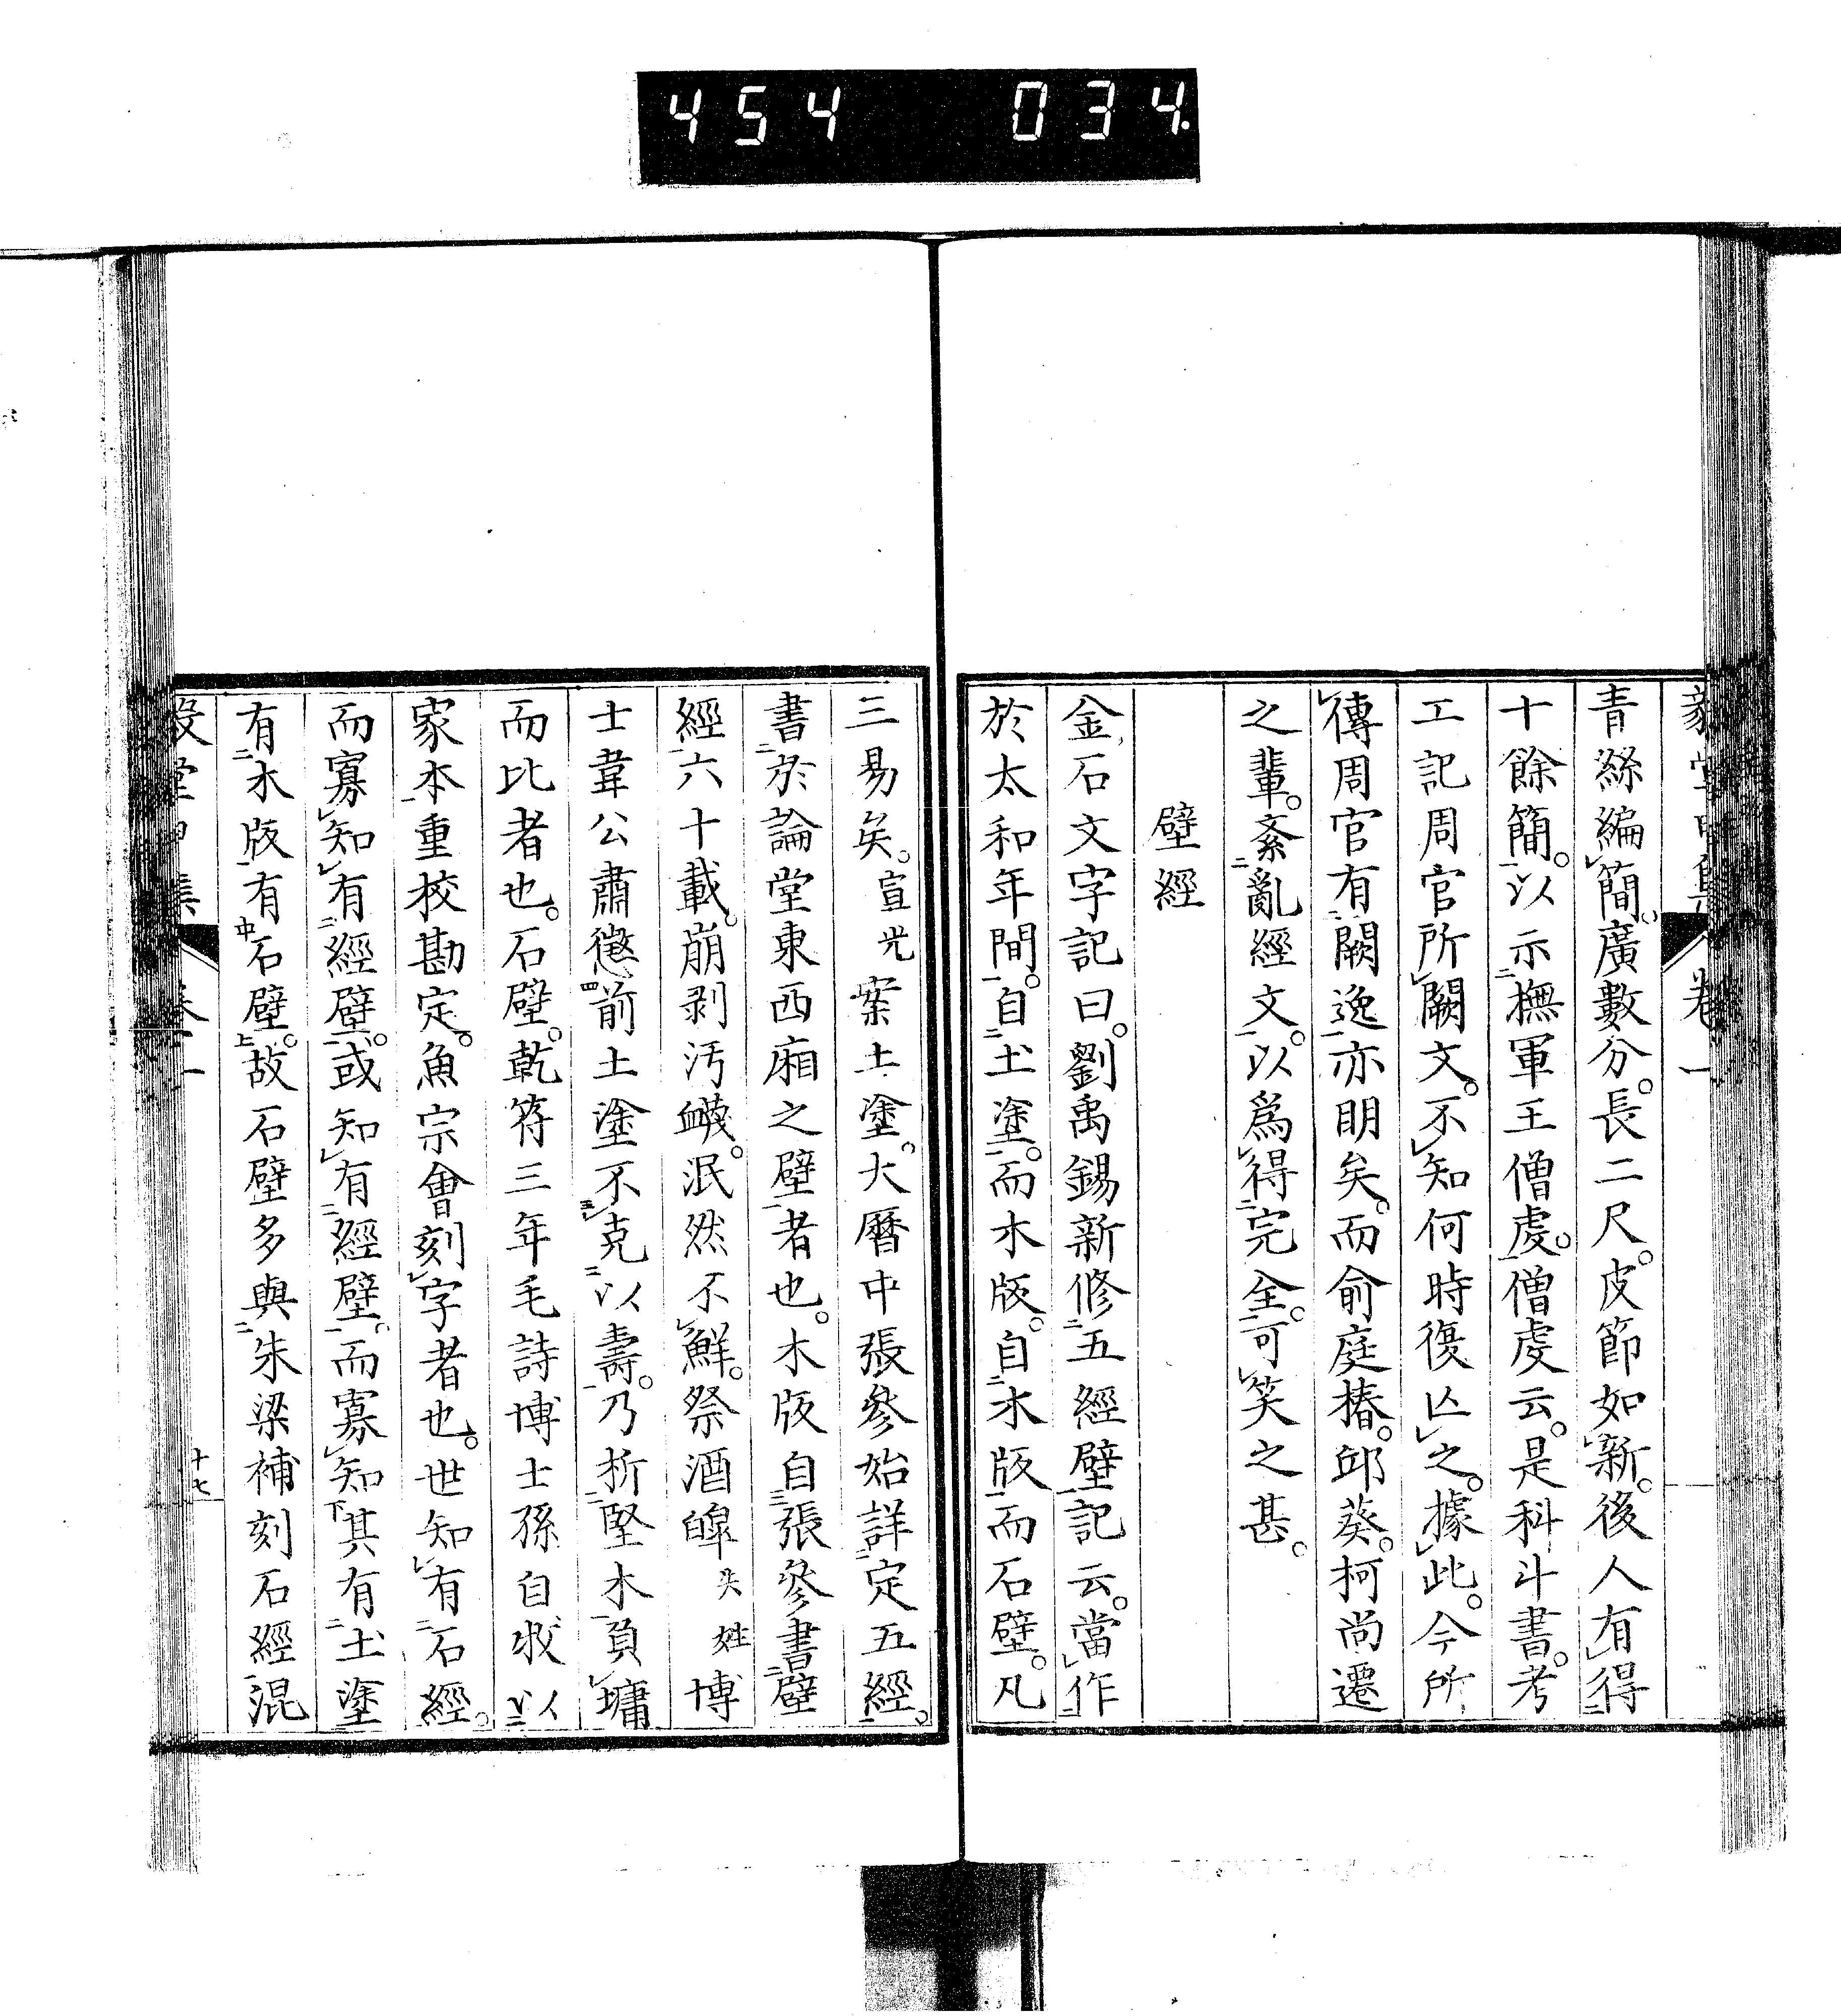 454 034.
毅堂甲集 卷一
青絲編簡。廣數分。長二尺。皮節如新。後人有得
十餘簡。以示撫軍王僧虔。僧虔云。是科斗書。考
工記周官所闕文。不知何時復亾之。據此。今所
傳周官有闕逸亦明矣。而俞庭椿。邱葵。柯尚遷
之輩。紊亂經文。以爲得完全。可笑之甚。
壁經
金石文字記曰。劉禹錫新修五經壁記云。當作
於太和年間。自土塗。而木版。自木版而石壁。凡
三易矣。宣光案土塗。大曆中張參始詳定五經。
書於論堂東西廂之壁者也。木版自張參書壁
經六十載。崩剥汚衊。泯然不鮮。祭酒皥失姓博
士韋公肅懲前土塗不克以壽。乃析堅木負墉
而比者也。石壁。乾符三年毛詩博士孫自牧以
家本重校勘定。魚宗會刻字者也。世知有石經。
而寡知有經壁。或知有經壁。而寡知其有土塗
有木版有石壁。故石壁多與朱梁補刻石經混
毅堂甲集 卷一 十七